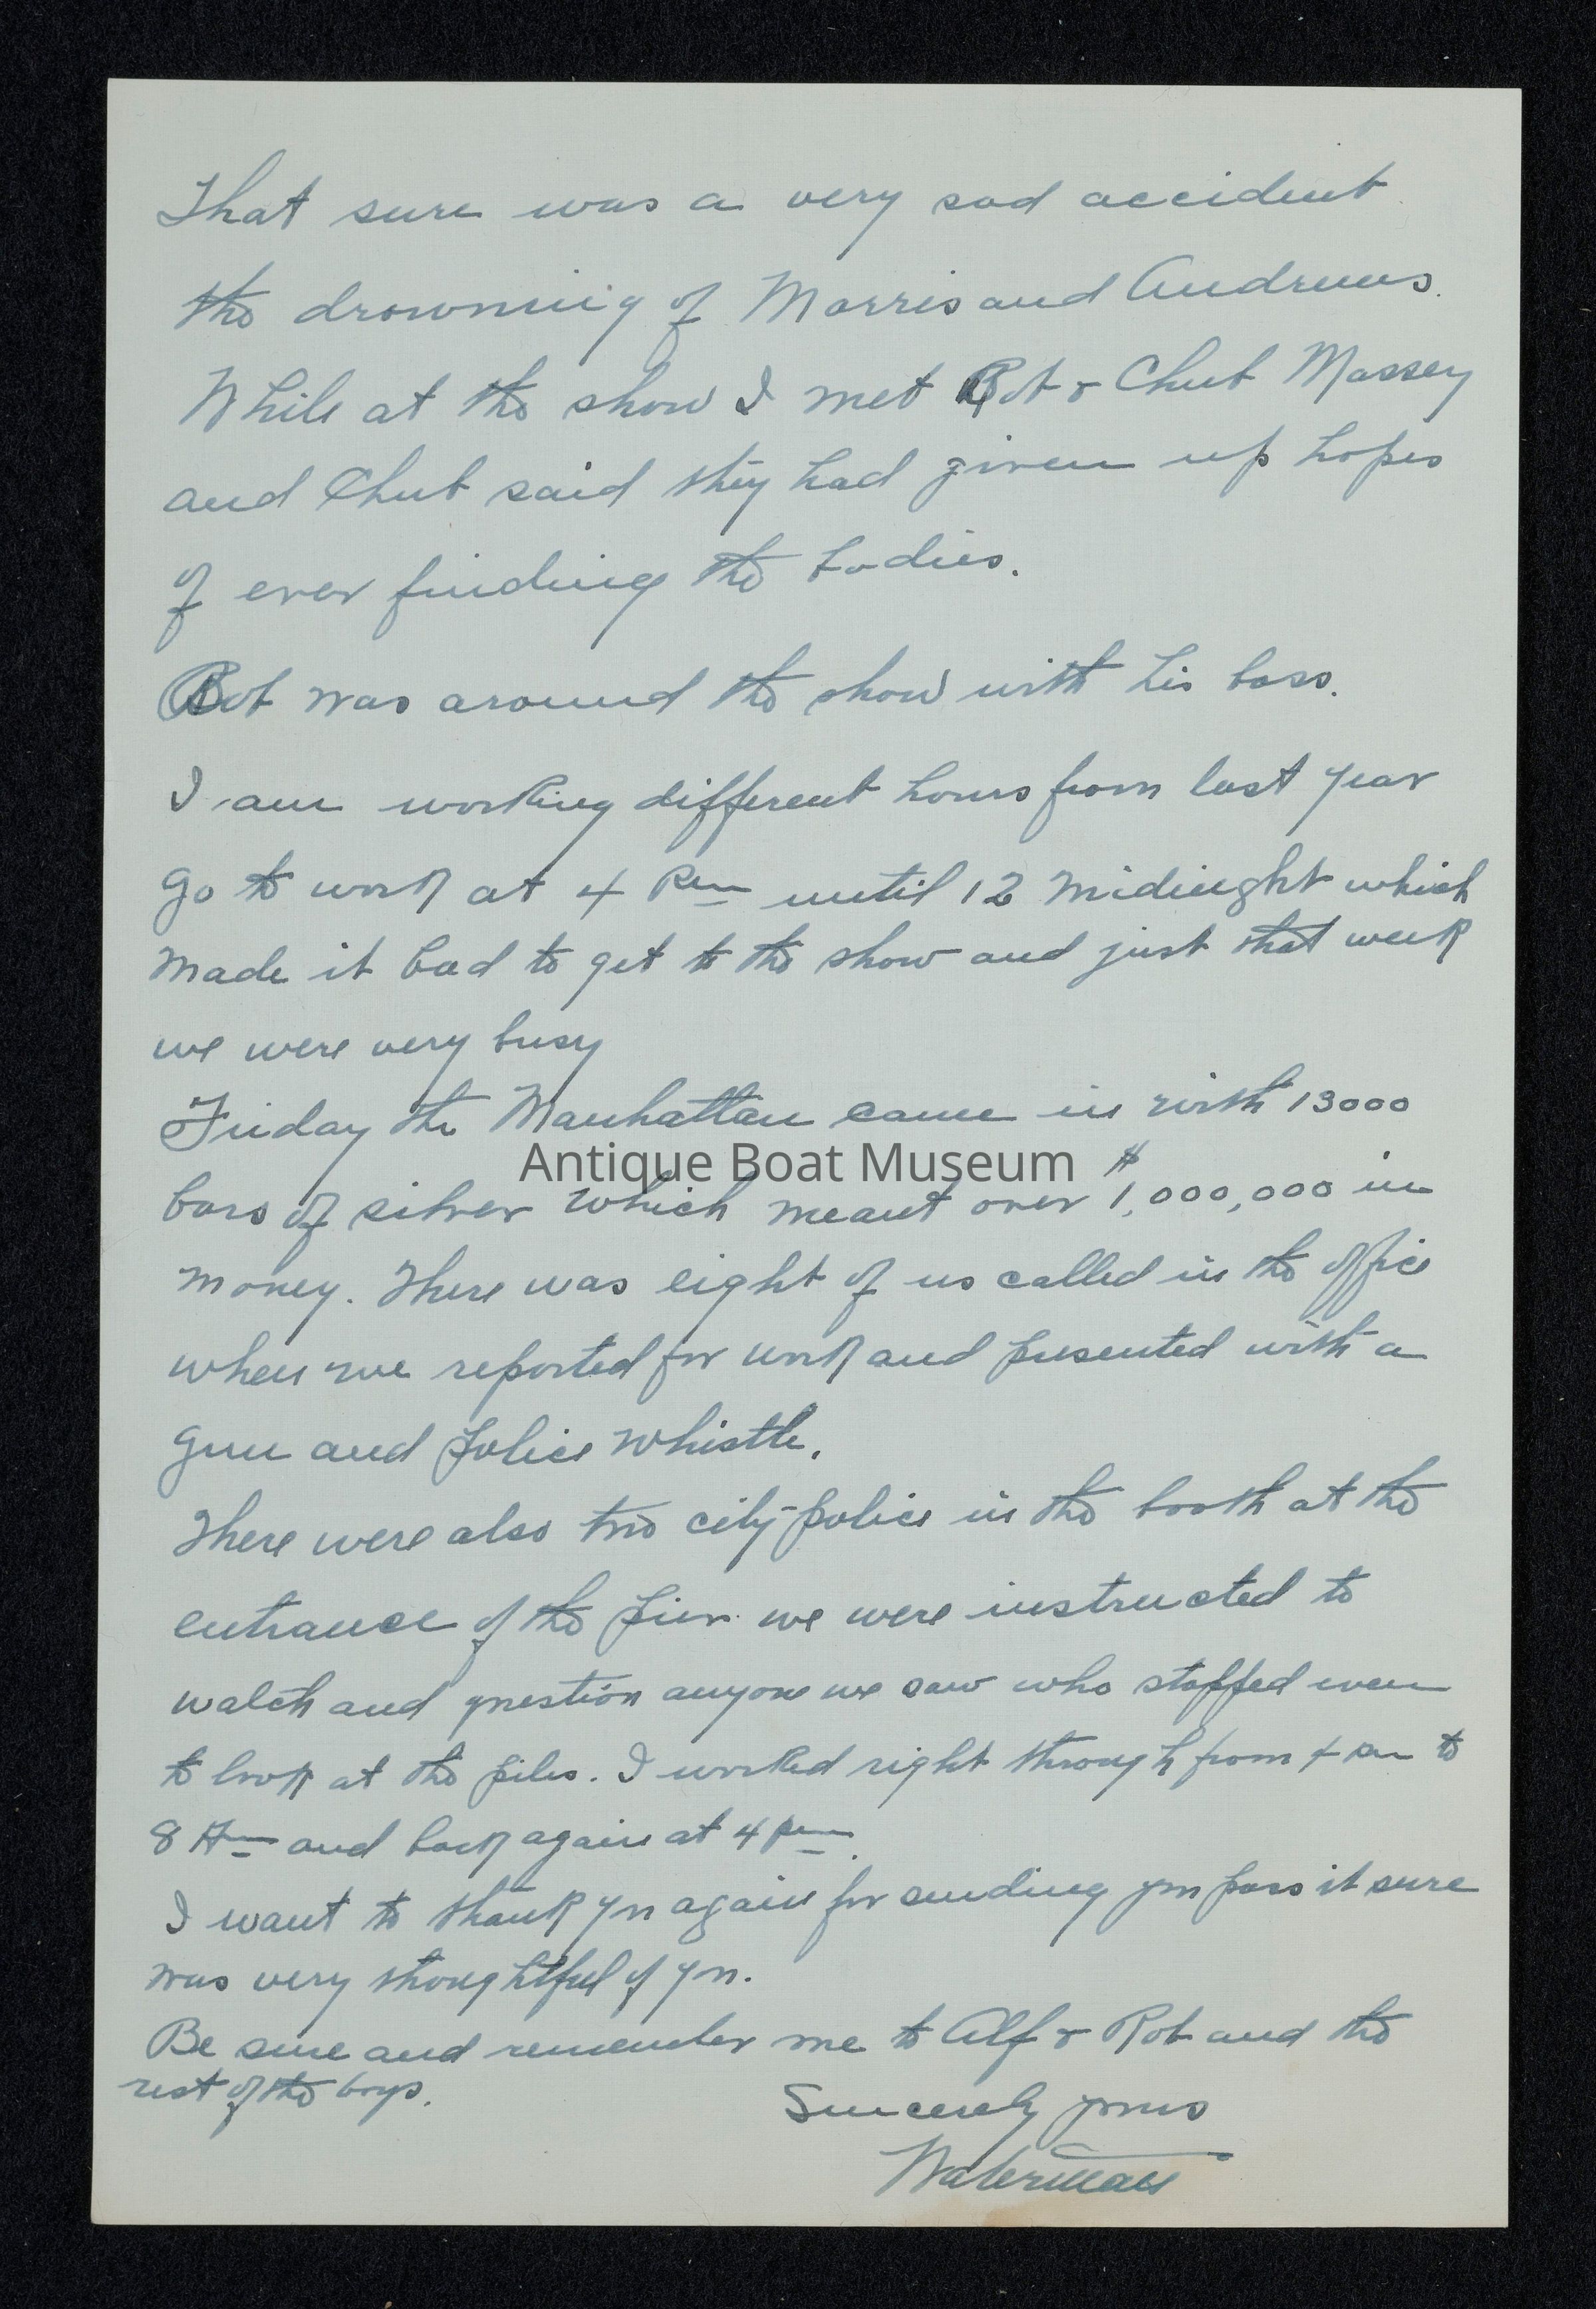 That sure was a very sad accident
the drowning of Morris and Andrews.
While at the show I met Bob & Chub Massey
and Chub said they had given up hopes
of ever finding the bodies.
Bob was around the show with his boss.
I am working different hours from last year
go to work at 4 Pm until 12 midinght which
made it bad to get to the show and just that week
we were very busy
Friday the Manhattan came in with 13000
Antique Boat Museum
bars of silver which meant over $1,000,000 in
money. There was eight of us called in the office
when we reported for work and presented with a
gun and police whistle.
There were also two city police in the booth at the
entrance of the pier. we were instructed to
watch and question anyone we saw who stopped even
to look at the piles. I worked right through from 4 pm to
8 Am and back again at 4 pm.
I want to thank you again for sending you pass it sure
was very thoughtful of you.
Be sure and remember me to Alf & Rob and the
rest of the boys.
Sincerely yours
Waterman